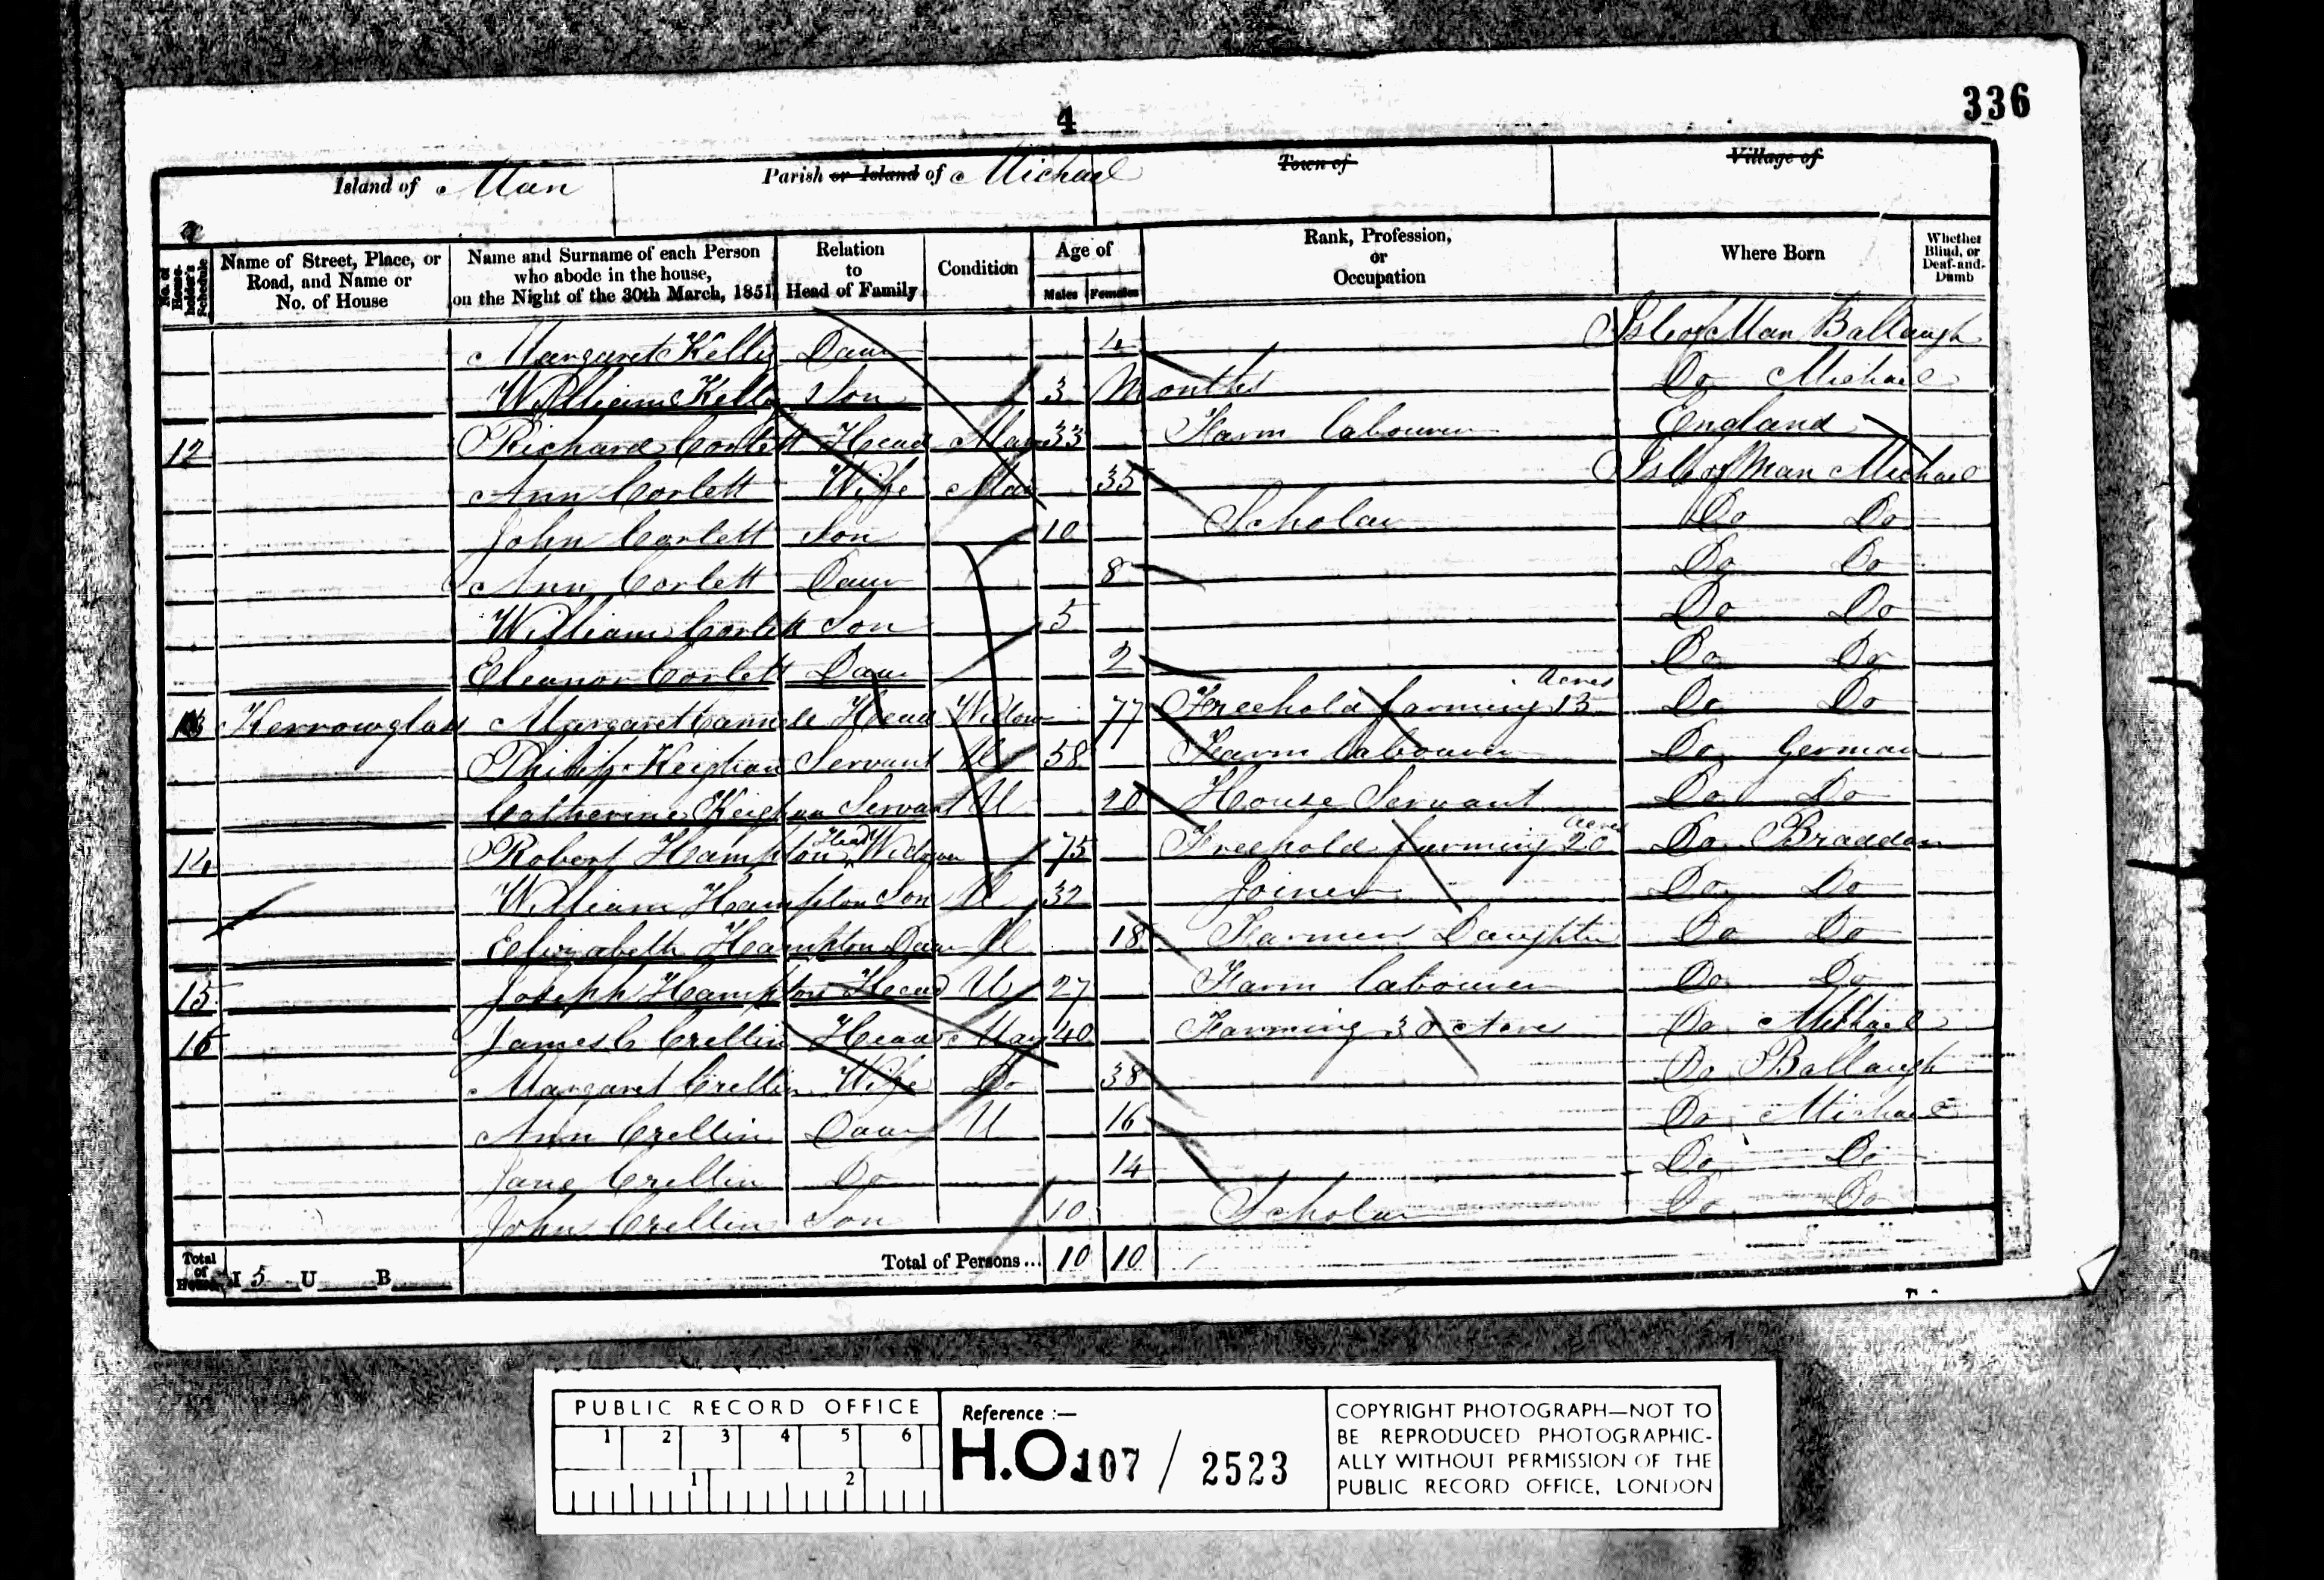 336
4
Island of Man Parish or Island of Michael Town of Village of
No. of House-holder's Schedule
Name of Street, Place, or Road, and Name or No. of House
Name and Surname of each Person who abode in the house, on the Night of the 30th March, 1851
Relation to Head of Family
Condition
Age of
Males Females
Rank, Profession, or Occupation
Where Born
Whether Blind, or Deaf-and-Dumb
Margaret Kelly Daur 4 Isle of Man Ballaugh
William Kelly Son 3 Months Do Michael
12 Richard Corlett Head Mar 33 Farm labourer England
Ann Corlett Wife Mar 35 Isle of Man Michael
John Corlett Son 10 Scholar Do Do
Ann Corlett Daur 8 Do Do
William Corlett Son 5 Do Do
Eleanor Corlett Daur 2 Do Do
13 Kerrowglass Margaret Cannele Head Widow 77 Freehold farming 13 Acres Do Do
Philip Keighan Servant U 58 Farm labourer Do German
Catherine Keighan Servant U 20 House Servant Do Do
14 Robert Hampton Head Widower 75 Freehold farming 20 Acres Do Braddan
William Hampton Son U 32 Joiner Do Do
Elizabeth Hampton Daur U 18 Farmers Daughter Do Do
15 Joseph Hampton Head U 27 Farm labourer Do Do
16 James C Crellin Head Mar 40 Farming 30 Acres Do Michael
Margaret Crellin Wife Do 38 Do Ballaugh
Ann Crellin Daur U 16 Do Michael
Jane Crellin Do 14 Do Do
John Crellin Son 10 Scholar Do Do
Total of Houses I 5 U B Total of Persons... 10 10
PUBLIC RECORD OFFICE
1 2 3 4 5 6
1 2
Reference :—
H.O. 107 / 2523
COPYRIGHT PHOTOGRAPH—NOT TO
BE REPRODUCED PHOTOGRAPHIC-
ALLY WITHOUT PERMISSION OF THE
PUBLIC RECORD OFFICE, LONDON